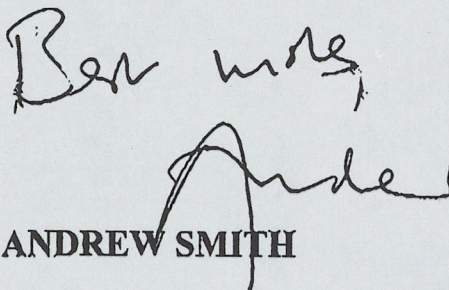 Best wishes,
Andrew
ANDREW SMITH